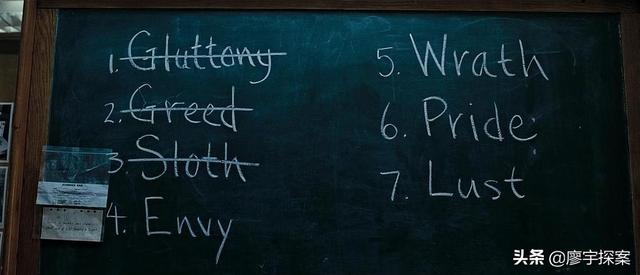 1. Gluttony
2. Greed
3. Sloth
4. Envy
5. Wrath
6. Pride
7. Lust
头条 @廖宇探案